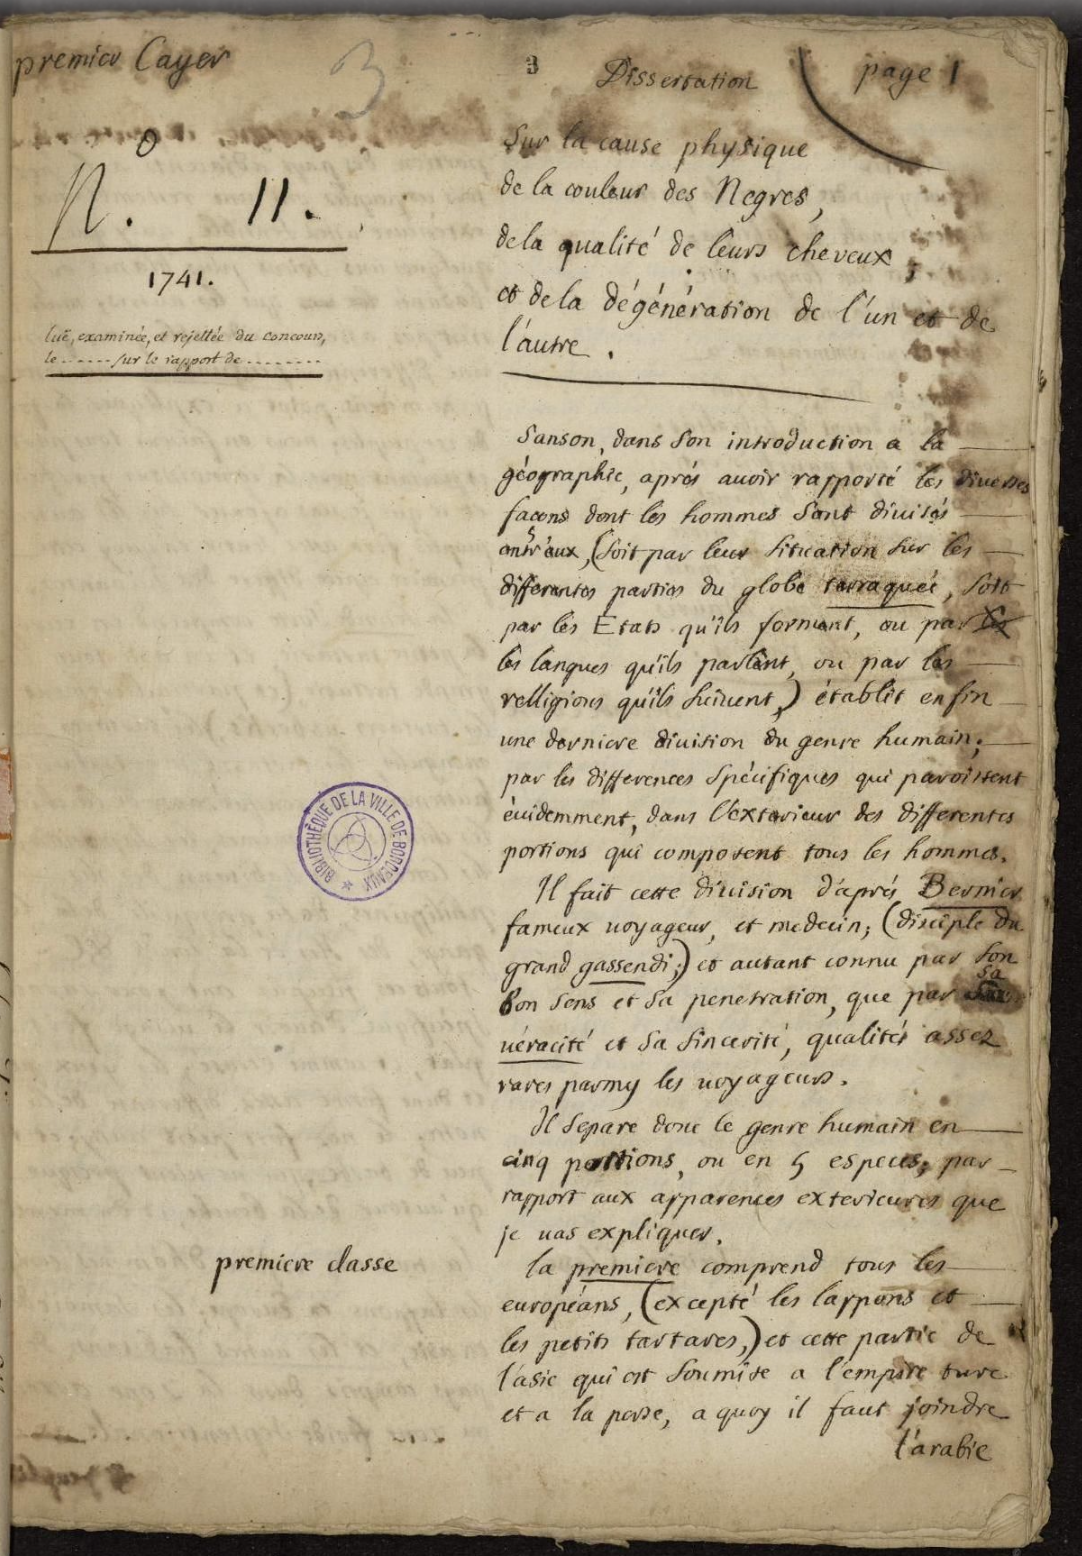 premier Cayer
3
3
Dissertation
page 1
O
N. 11.
1741.
luë, examinée, et rejettée du concours,
le ------ sur le rapport de --------
Sur la cause physique
de la couleur des Negres,
de la qualité de leurs cheveux,
et de la dégénération de l'un et de
l'autre.
Sanson, dans son introduction a la
géographie, aprés avoir rapporté les diverses
facons dont les hommes sont divisés
entr'aux, (soit par leur situation sur les
differentes parties du globe terraquée, soit
par les Etats qu'ils forment, ou par
les langues qu'ils parlent, ou par les
relligions qu'ils suivent,) établit enfin
une derniere division du genre humain;
par les differences spécifiques qui paroissent
évidemment, dans l'exterieur des differentes
portions qui composent tous les hommes.
Il fait cette division d'aprés Bernier
fameux voyageur, et medecin; (disciple du
grand gassendi;) et autant connu par son
bon sens et sa penetration, que par sa
véracité et sa sincerité, qualités assez
rares parmy les voyageurs.
Il separe donc le genre humain en
cinq portions, ou en 5 especes, par
rapport aux apparences exterieures que
je vas expliquer.
premiere classe
la premiere comprend tous les
européans, (excepté les lappons et
les petits tartares,) et cette partie de
l'asie qui est soumise a l'empire turc
et a la perse, a quoy il faut joindre
l'arabie
BIBLIOTHÈQUE DE LA VILLE DE BORDEAUX